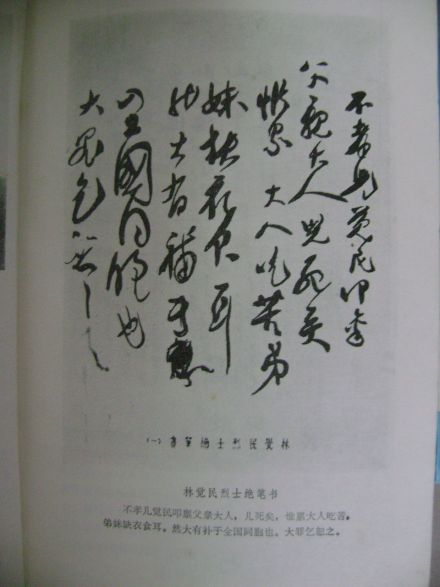 不孝兒覺民叩稟
父親大人兒死矣
惟累 大人吃苦弟
妹缺衣食耳
然大有補于
全國同胞也
大罪乞恕之
林覺民烈士絕筆書(一)
林觉民烈士绝笔书
不孝儿觉民叩禀父亲大人,儿死矣,惟累大人吃苦,
弟妹缺衣食耳。然大有补于全国同胞也。大罪乞恕之。